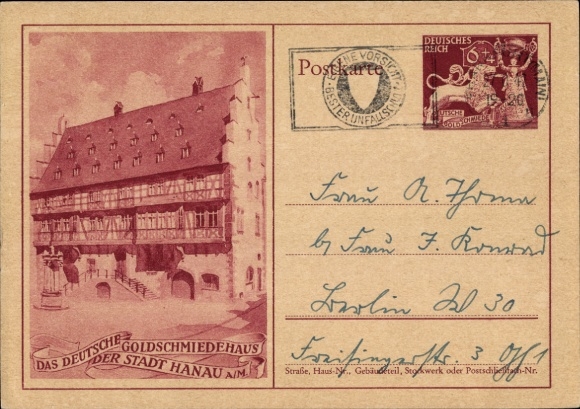 DEUTSCHES
REICH
6+4
Postkarte
EIGENE VORSICHT
BESTER UNFALLSCHUTZ
DEUTSCHE
GOLDSCHMIEDE
Frau A. Thoma
b/ Frau J. Konrad
Berlin W 30
Freisingerstr. 3
Straße, Haus-Nr., Gebäudeteil, Stockwerk oder Postschließfach-Nr.
DAS DEUTSCHE GOLDSCHMIEDEHAUS
DER STADT HANAU A/M.